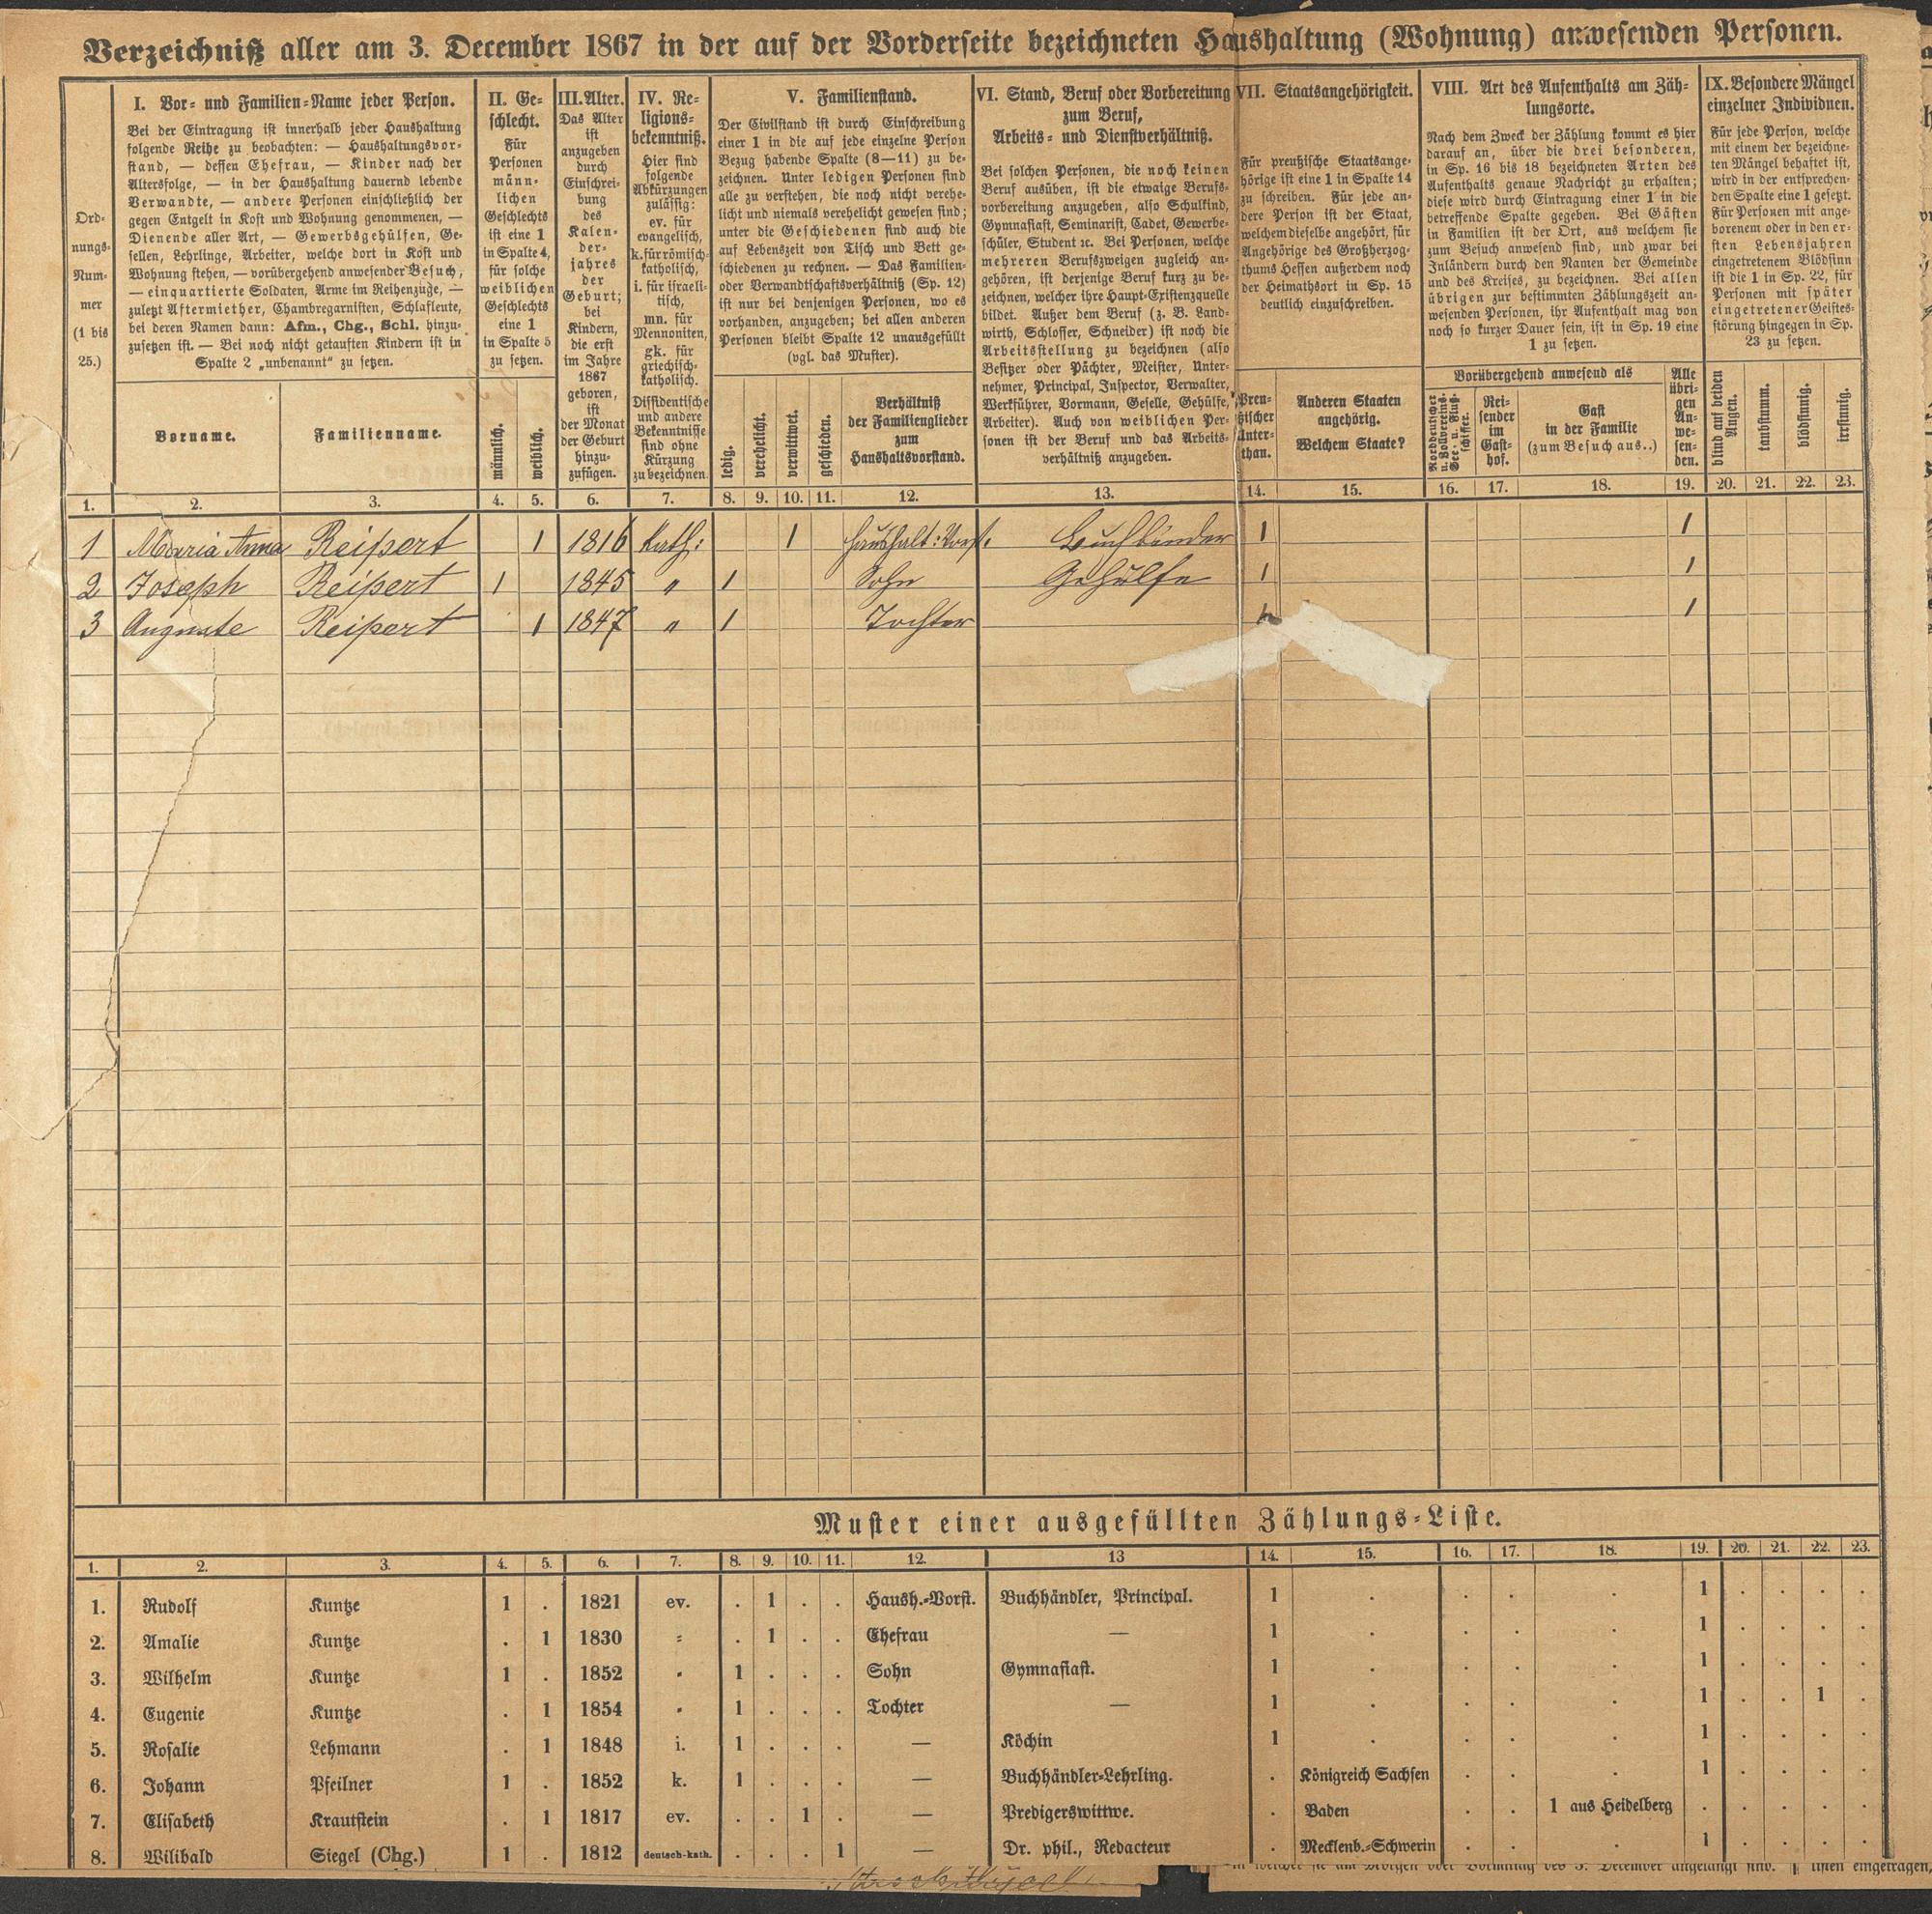 Verzeichniß aller am 3. December 1867 in der auf der Vorderseite bezeichneten Haushaltung (Wohnung) anwesenden Personen.
Ord-
nungs-
Num-
mer
(1 bis
25.)
I. Vor- und Familien-Name jeder Person.
Bei der Eintragung ist innerhalb jeder Haushaltung
folgende Reihe zu beobachten: — Haushaltungsvor-
stand, — dessen Ehefrau, — Kinder nach der
Altersfolge, — in der Haushaltung dauernd lebende
Verwandte, — andere Personen einschließlich der
gegen Entgelt in Kost und Wohnung genommenen, —
Dienende aller Art, — Gewerbsgehülfen, Ge-
sellen, Lehrlinge, Arbeiter, welche dort in Kost und
Wohnung stehen, — vorübergehend anwesender Besuch,
— einquartierte Soldaten, Arme im Reihenzuge, —
zuletzt Aftermiether, Chambregarnisten, Schlafleute,
bei deren Namen dann: Afm., Chg., Schl. hinzu-
zusetzen ist. — Bei noch nicht getauften Kindern ist in
Spalte 2 „unbenannt" zu setzen.
Vorname.
Familienname.
II. Ge-
schlecht.
Für
Personen
männ-
lichen
Geschlechts
ist eine 1
in Spalte 4,
für solche
weiblichen
Geschlechts
eine 1
in Spalte 5
zu setzen.
männlich.
weiblich.
III. Alter.
Das Alter
ist
anzugeben
durch
Einschrei-
bung
des
Kalen-
der-
jahres
der
Geburt;
bei
Kindern,
die erst
im Jahre
1867
geboren,
ist
der Monat
der Geburt
hinzu-
zufügen.
IV. Re-
ligions-
bekenntniß.
Hier sind
folgende
Abkürzungen
zulässig:
ev. für
evangelisch,
k. für römisch-
katholisch,
i. für israeli-
tisch,
mn. für
Mennoniten,
gk. für
griechisch-
katholisch.
Dissidentische
und andere
Bekenntnisse
sind ohne
Kürzung
zu bezeichnen.
V. Familienstand.
Der Civilstand ist durch Einschreibung
einer 1 in die auf jede einzelne Person
Bezug habende Spalte (8—11) zu be-
zeichnen. Unter ledigen Personen sind
alle zu verstehen, die noch nicht verehe-
licht und niemals verehelicht gewesen sind;
unter die Geschiedenen sind auch die
auf Lebenszeit von Tisch und Bett ge-
schiedenen zu rechnen. — Das Familien-
oder Verwandtschaftsverhältniß (Sp. 12)
ist nur bei denjenigen Personen, wo es
vorhanden, anzugeben; bei allen anderen
Personen bleibt Spalte 12 unausgefüllt
(vgl. das Muster).
ledig.
verehelicht.
verwittwet.
geschieden.
Verhältniß
der Familienglieder
zum
Haushaltsvorstand.
VI. Stand, Beruf oder Vorbereitung
zum Beruf,
Arbeits- und Dienstverhältniß.
Bei solchen Personen, die noch keinen
Beruf ausüben, ist die etwaige Berufs-
vorbereitung anzugeben, also Schulkind,
Gymnasiast, Seminarist, Cadet, Gewerbe-
schüler, Student ꝛc. Bei Personen, welche
mehreren Berufszweigen zugleich an-
gehören, ist derjenige Beruf kurz zu be-
zeichnen, welcher ihre Haupt-Existenzquelle
bildet. Außer dem Beruf (z. B. Land-
wirth, Schlosser, Schneider) ist noch die
Arbeitsstellung zu bezeichnen (also
Besitzer oder Pächter, Meister, Unter-
nehmer, Principal, Inspector, Verwalter,
Werkführer, Vormann, Geselle, Gehülfe,
Arbeiter). Auch von weiblichen Per-
sonen ist der Beruf und das Arbeits-
verhältniß anzugeben.
VII. Staatsangehörigkeit.
Für preußische Staatsange-
hörige ist eine 1 in Spalte 14
zu schreiben. Für jede an-
dere Person ist der Staat,
welchem dieselbe angehört, für
Angehörige des Großherzog-
thums Hessen außerdem noch
der Heimathsort in Sp. 15
deutlich einzuschreiben.
Preu-
ßischer
Unter-
than.
Anderen Staaten
angehörig.
Welchem Staate?
VIII. Art des Aufenthalts am Zäh-
lungsorte.
Nach dem Zweck der Zählung kommt es hier
darauf an, über die drei besonderen,
in Sp. 16 bis 18 bezeichneten Arten des
Aufenthalts genaue Nachricht zu erhalten;
diese wird durch Eintragung einer 1 in die
betreffende Spalte gegeben. Bei Gästen
in Familien ist der Ort, aus welchem sie
zum Besuch anwesend sind, und zwar bei
Inländern durch den Namen der Gemeinde
und des Kreises, zu bezeichnen. Bei allen
übrigen zur bestimmten Zählungszeit an-
wesenden Personen, ihr Aufenthalt mag von
noch so kurzer Dauer sein, ist in Sp. 19 eine
1 zu setzen.
Vorübergehend anwesend als
Norddeutscher
u. Zollvereins-
See- u. Fluß-
schiffer.
Rei-
sender
im
Gast-
hof.
Gast
in der Familie
(zum Besuch aus..)
Alle
übri-
gen
An-
we-
sen-
den.
IX. Besondere Mängel
einzelner Individuen.
Für jede Person, welche
mit einem der bezeichne-
ten Mängel behaftet ist,
wird in der entsprechen-
den Spalte eine 1 gesetzt.
Für Personen mit ange-
borenem oder in den er-
sten Lebensjahren
eingetretenem Blödsinn
ist die 1 in Sp. 22, für
Personen mit später
eingetretener Geistes-
störung hingegen in Sp.
23 zu setzen.
blind auf beiden
Augen.
taubstumm.
blödsinnig.
irrsinnig.
1. 2. 3. 4. 5. 6. 7. 8. 9. 10. 11. 12. 13. 14. 15. 16. 17. 18. 19. 20. 21. 22. 23.
1 Maria Anna Reipert 1 1816 Kath: 1 Haushalt: Vorst. Buchbinder 1 1
2 Joseph Reipert 1 1845 " 1 Sohn Gehülfe 1 1
3 Auguste Reipert 1 1847 " 1 Tochter 1 1
Muster einer ausgefüllten Zählungs-Liste.
1. 2. 3. 4. 5. 6. 7. 8. 9. 10. 11. 12. 13 14. 15. 16. 17. 18. 19. 20. 21. 22. 23.
1. Rudolf Kuntze 1 . 1821 ev. . 1 . . Haush.-Vorst. Buchhändler, Principal. 1 . . . . 1 . . . .
2. Amalie Kuntze . 1 1830 " . 1 . . Ehefrau — 1 . . . . 1 . . . .
3. Wilhelm Kuntze 1 . 1852 " 1 . . . Sohn Gymnasiast. 1 . . . . 1 . . . .
4. Eugenie Kuntze . 1 1854 " 1 . . . Tochter — 1 . . . . 1 . . 1 .
5. Rosalie Lehmann . 1 1848 i. 1 . . . — Köchin 1 . . . . 1 . . . .
6. Johann Pfeilner 1 . 1852 k. 1 . . . — Buchhändler-Lehrling. . Königreich Sachsen . . . 1 . . . .
7. Elisabeth Krautstein . 1 1817 ev. . . 1 . — Predigerswittwe. . Baden . . 1 aus Heidelberg . . . . .
8. Wilibald Siegel (Chg.) 1 . 1812 deutsch-kath. . . . 1 — Dr. phil., Redacteur . Mecklenb.-Schwerin . . . 1 . . . .
in welcher sie am Morgen oder Vormittag des 3. December angelangt sind.
listen eingetragen,